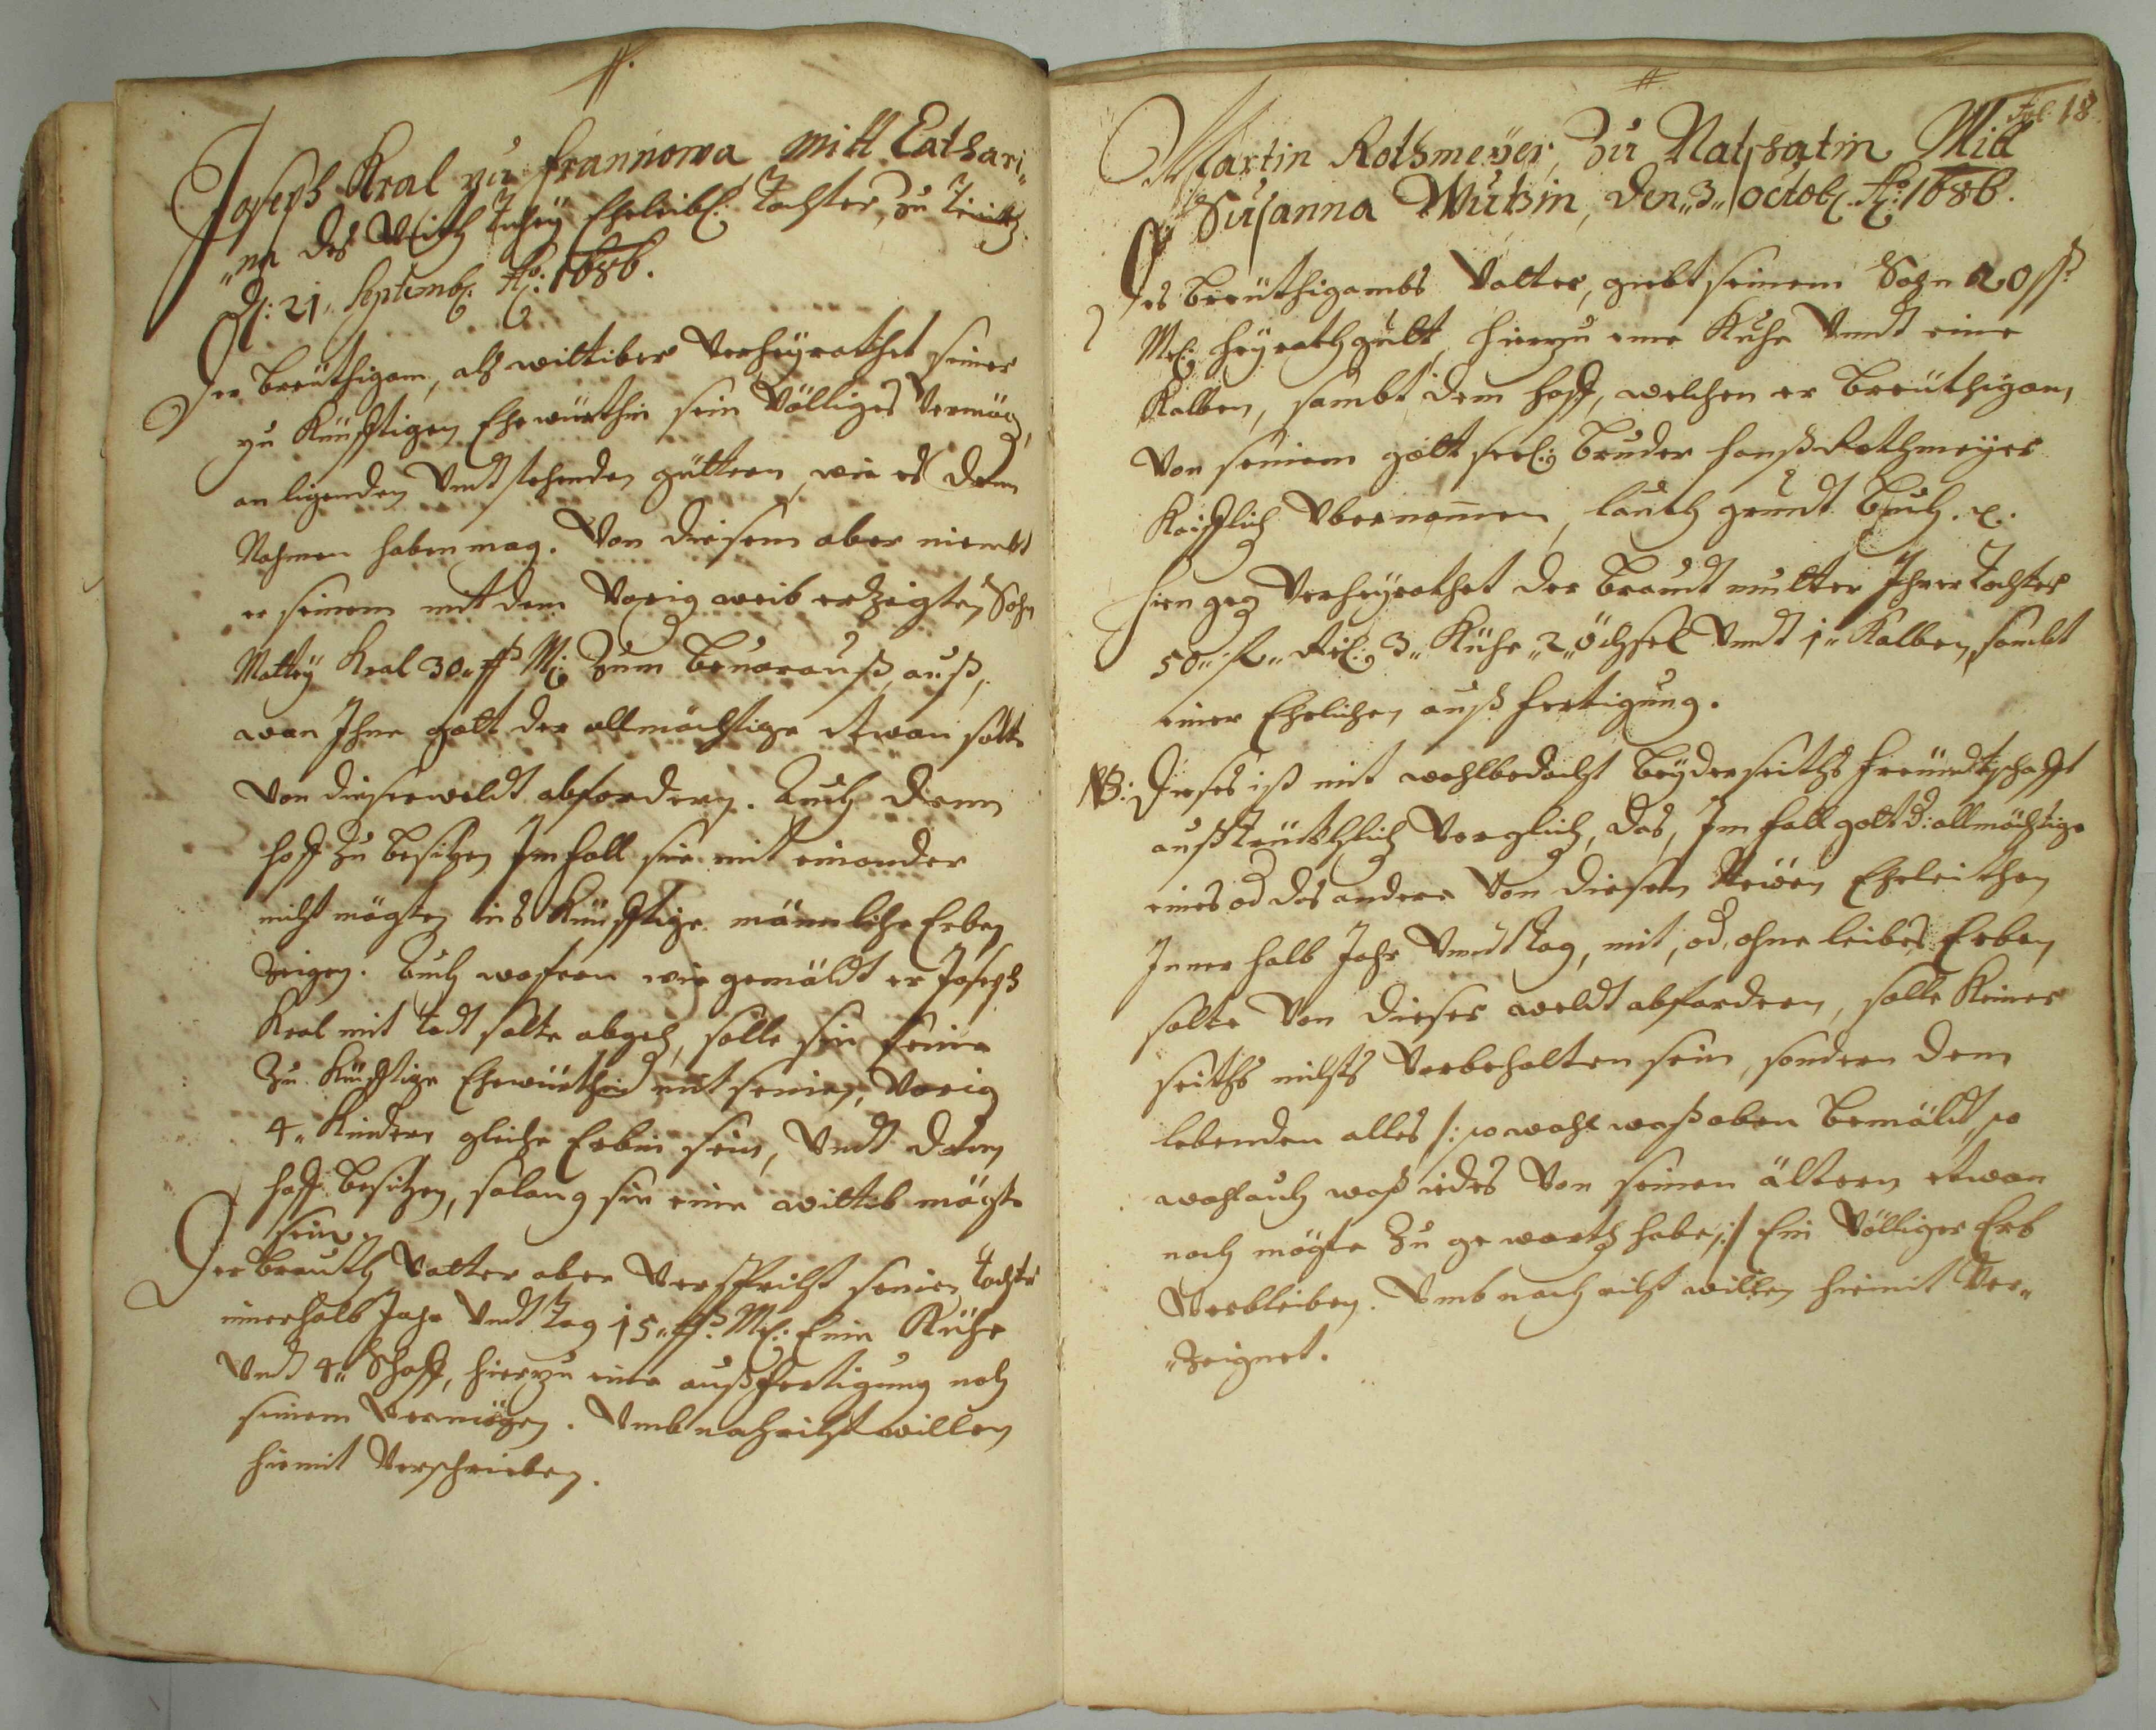 Joseph Kral zu Frannowa mitt Cathari„
„na des Veith Tockeÿ Eheleibl: Tochter, zu
d: 21. Septemb: Ao: 1686.
Der Breüthigam, alß wittiber Verheÿrathet seiner
zu Künfftigen Ehewürthin sein Völliges Vermög,
an ligenden Undt stehenden güttern, wie es dann
Nahmen haben mag. Von diesem aber nimbt
er seinem mit dem Vorig weib erzeigten Sohn
Mattheÿ Kral 30„ ß M: Zum Bevorauß, auß,
wan Ihne gott der allmächtige etwan solte
Von dieser weldt abfordern. Auch denn
hoff zu besitzen Im fall sie mit einander
nicht mögten ins Künfftige männliche Erben
Zeigen. Auch wofern wie gemäldt er Joseph
Kral mit todt solte abgeh, solle sie seine
Zu Künfftige Ehewürthin mit seinen, Vorig
4„ Kindern gleiche Erbin sein, Undt denn
hoff besitzen, solang sie eine wittib mögte
sein.
Der Brauth Vatter aber Verspricht seiner Tochter
innerhalb Jahr Undt tag 15„ ß M: Eine Kühe
Undt 4„ Schaff, hierzu eine außfertigung nach
seinem Vermögen. Umb nachricht willen
hiemit Verschrieben.
Fol: 18.
Martin Rothmeÿer, Zu Natschatin Mitt
Susanna Wuthin, den„ 3„ octob: Ao: 1686.
Des Breüthigambs Vatter, giebt seinem Sohn 20 ß
M: heÿrathgutt, hierzu eine Kuhe Undt eine
Kalben, sambt dem hoff, welchen er Breüthigam,
Von seinem gott seel: Bruder Hanß Rothmeÿer
Kaüfflich Ubernommen, lauth grundt Buch. etc.
Hiengeg Verheÿrathet der Braudt mutter Ihrer Tochter
50„ f„ Rl: 3„ Kühe „2„ öchsel Undt 1„ Kalben, sambt
einer Ehelichen außfertigung.
NB: Dieses ist mit wohlbedacht Beÿderseiths freündtschafft
außtrückhlich Verglich, das, Im fall gott d: allmächtige
eines od das andere Von diesen Neüen Eheleithen
Innerhalb Jahr Undt tag, mit, od, ohne leibes Erben
solte Von dieser weldt abfordern, solle Keiner
seiths nichts Vorbehalten sein, sondern dem
lebenden alles /: so wohl waß oben bemäldt, so
wohl auch waß iedes Von seinen ältern etwan
noch mögte Zu gewarth haben :/ Ein Völliger Erb
Verbleiben. Umb nachricht willen hiemit Ver„
„zeignet.